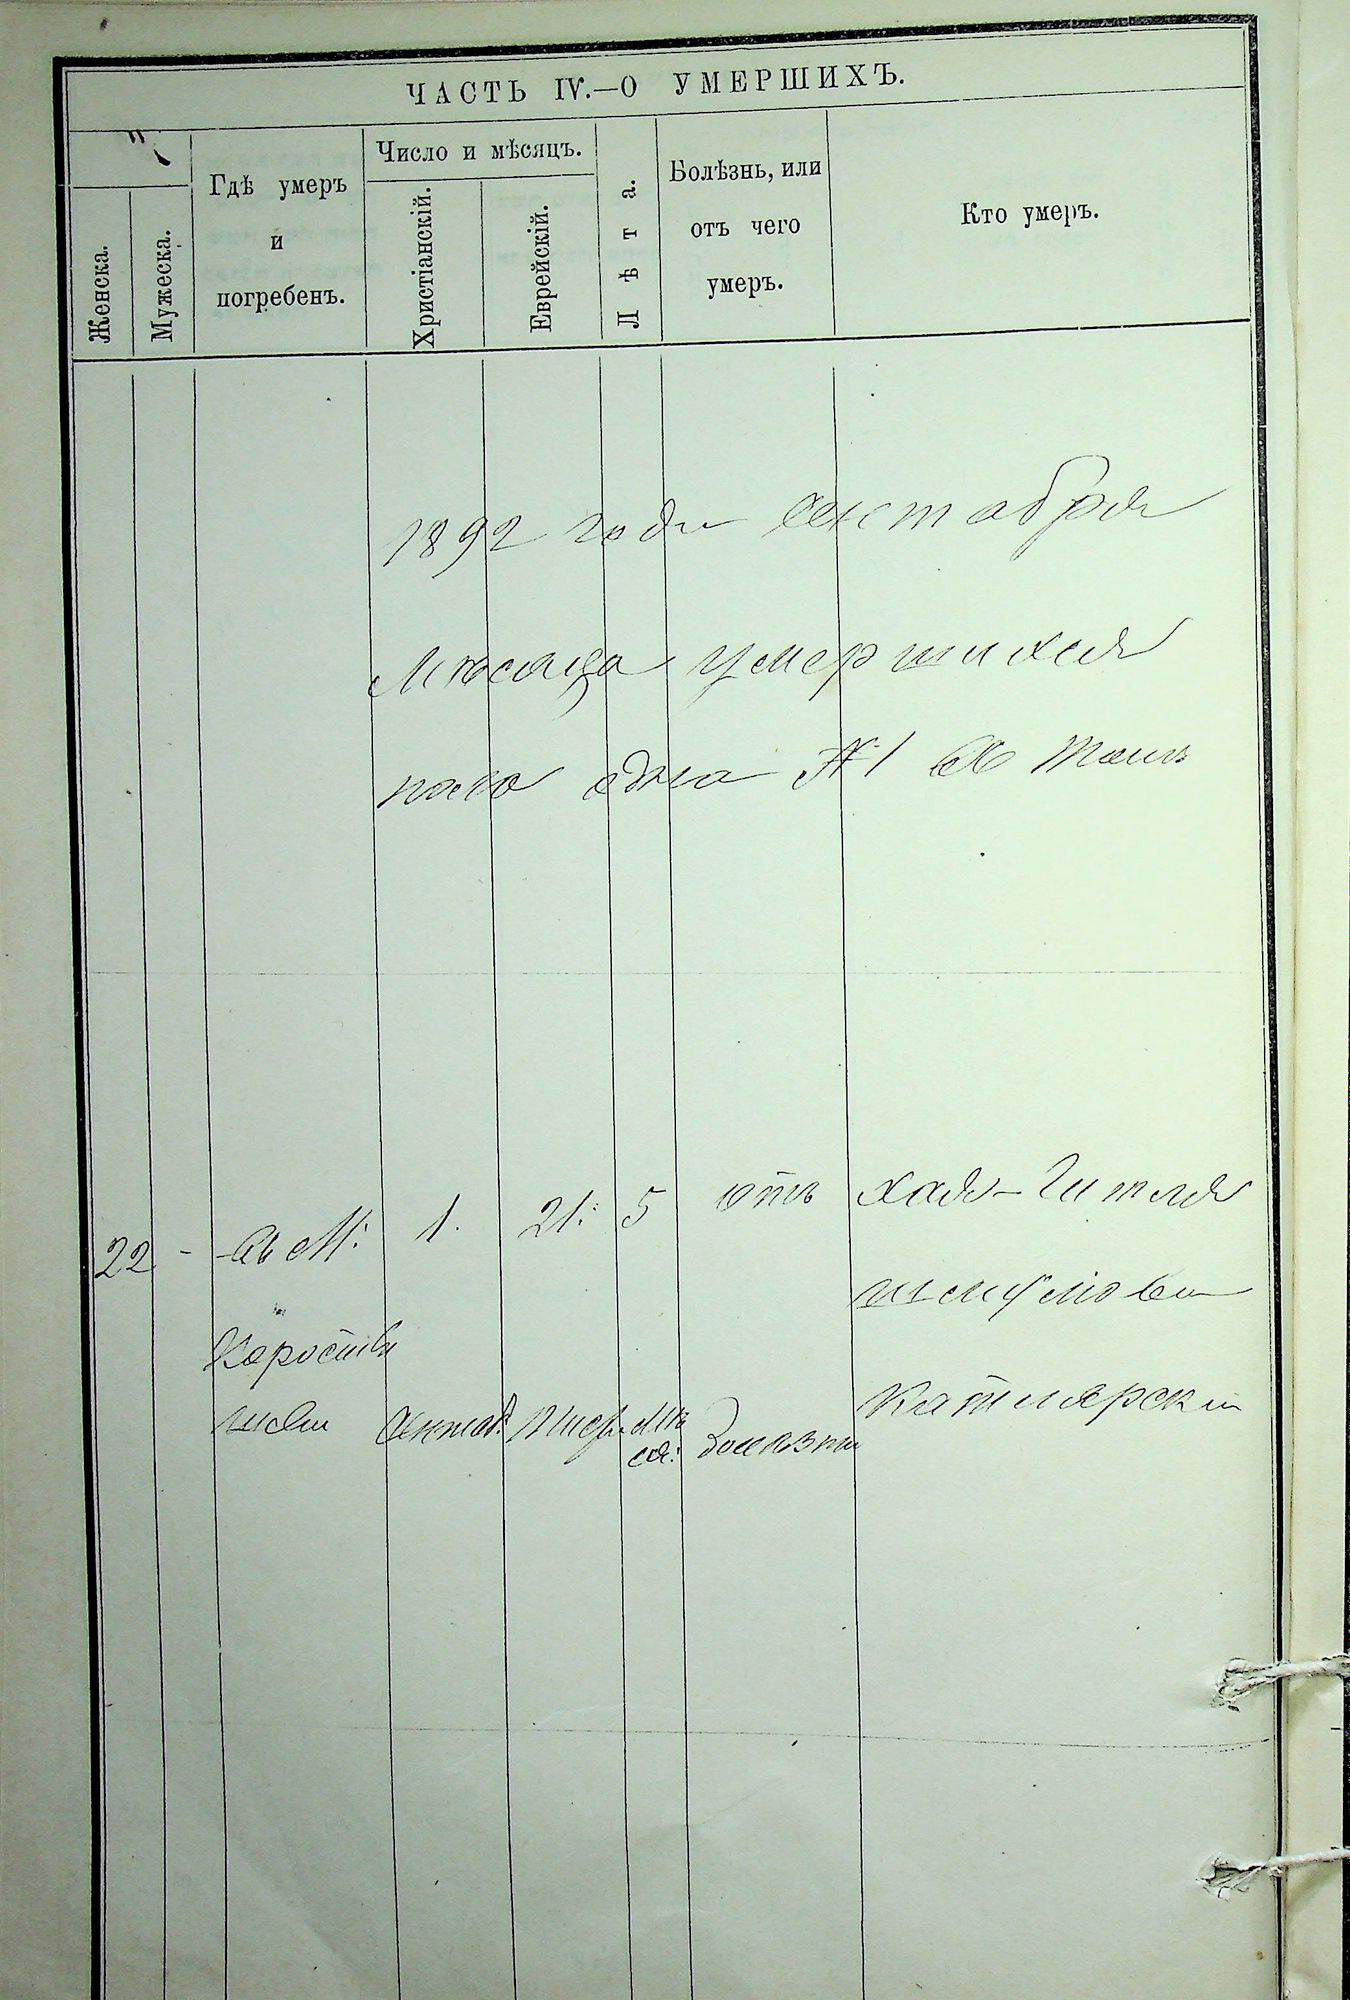 ЧАСТЬ IV.—О УМЕРШИХЪ.
Женска.
Мужеска.
Гдѣ умеръ
и
погребенъ.
Число и мѣсяцъ.
Христіанскій.
Еврейскій.
Лѣта.
Болѣзнь, или
отъ чего
умеръ.
Кто умеръ.
1892 года октября
мѣсяца умершихся
одна №1
22 - въ М: 1. 21: 5 отъ Хая-Гитля
Шмулова
Коростыши
Октяб. Тишр. мѣ
ся: